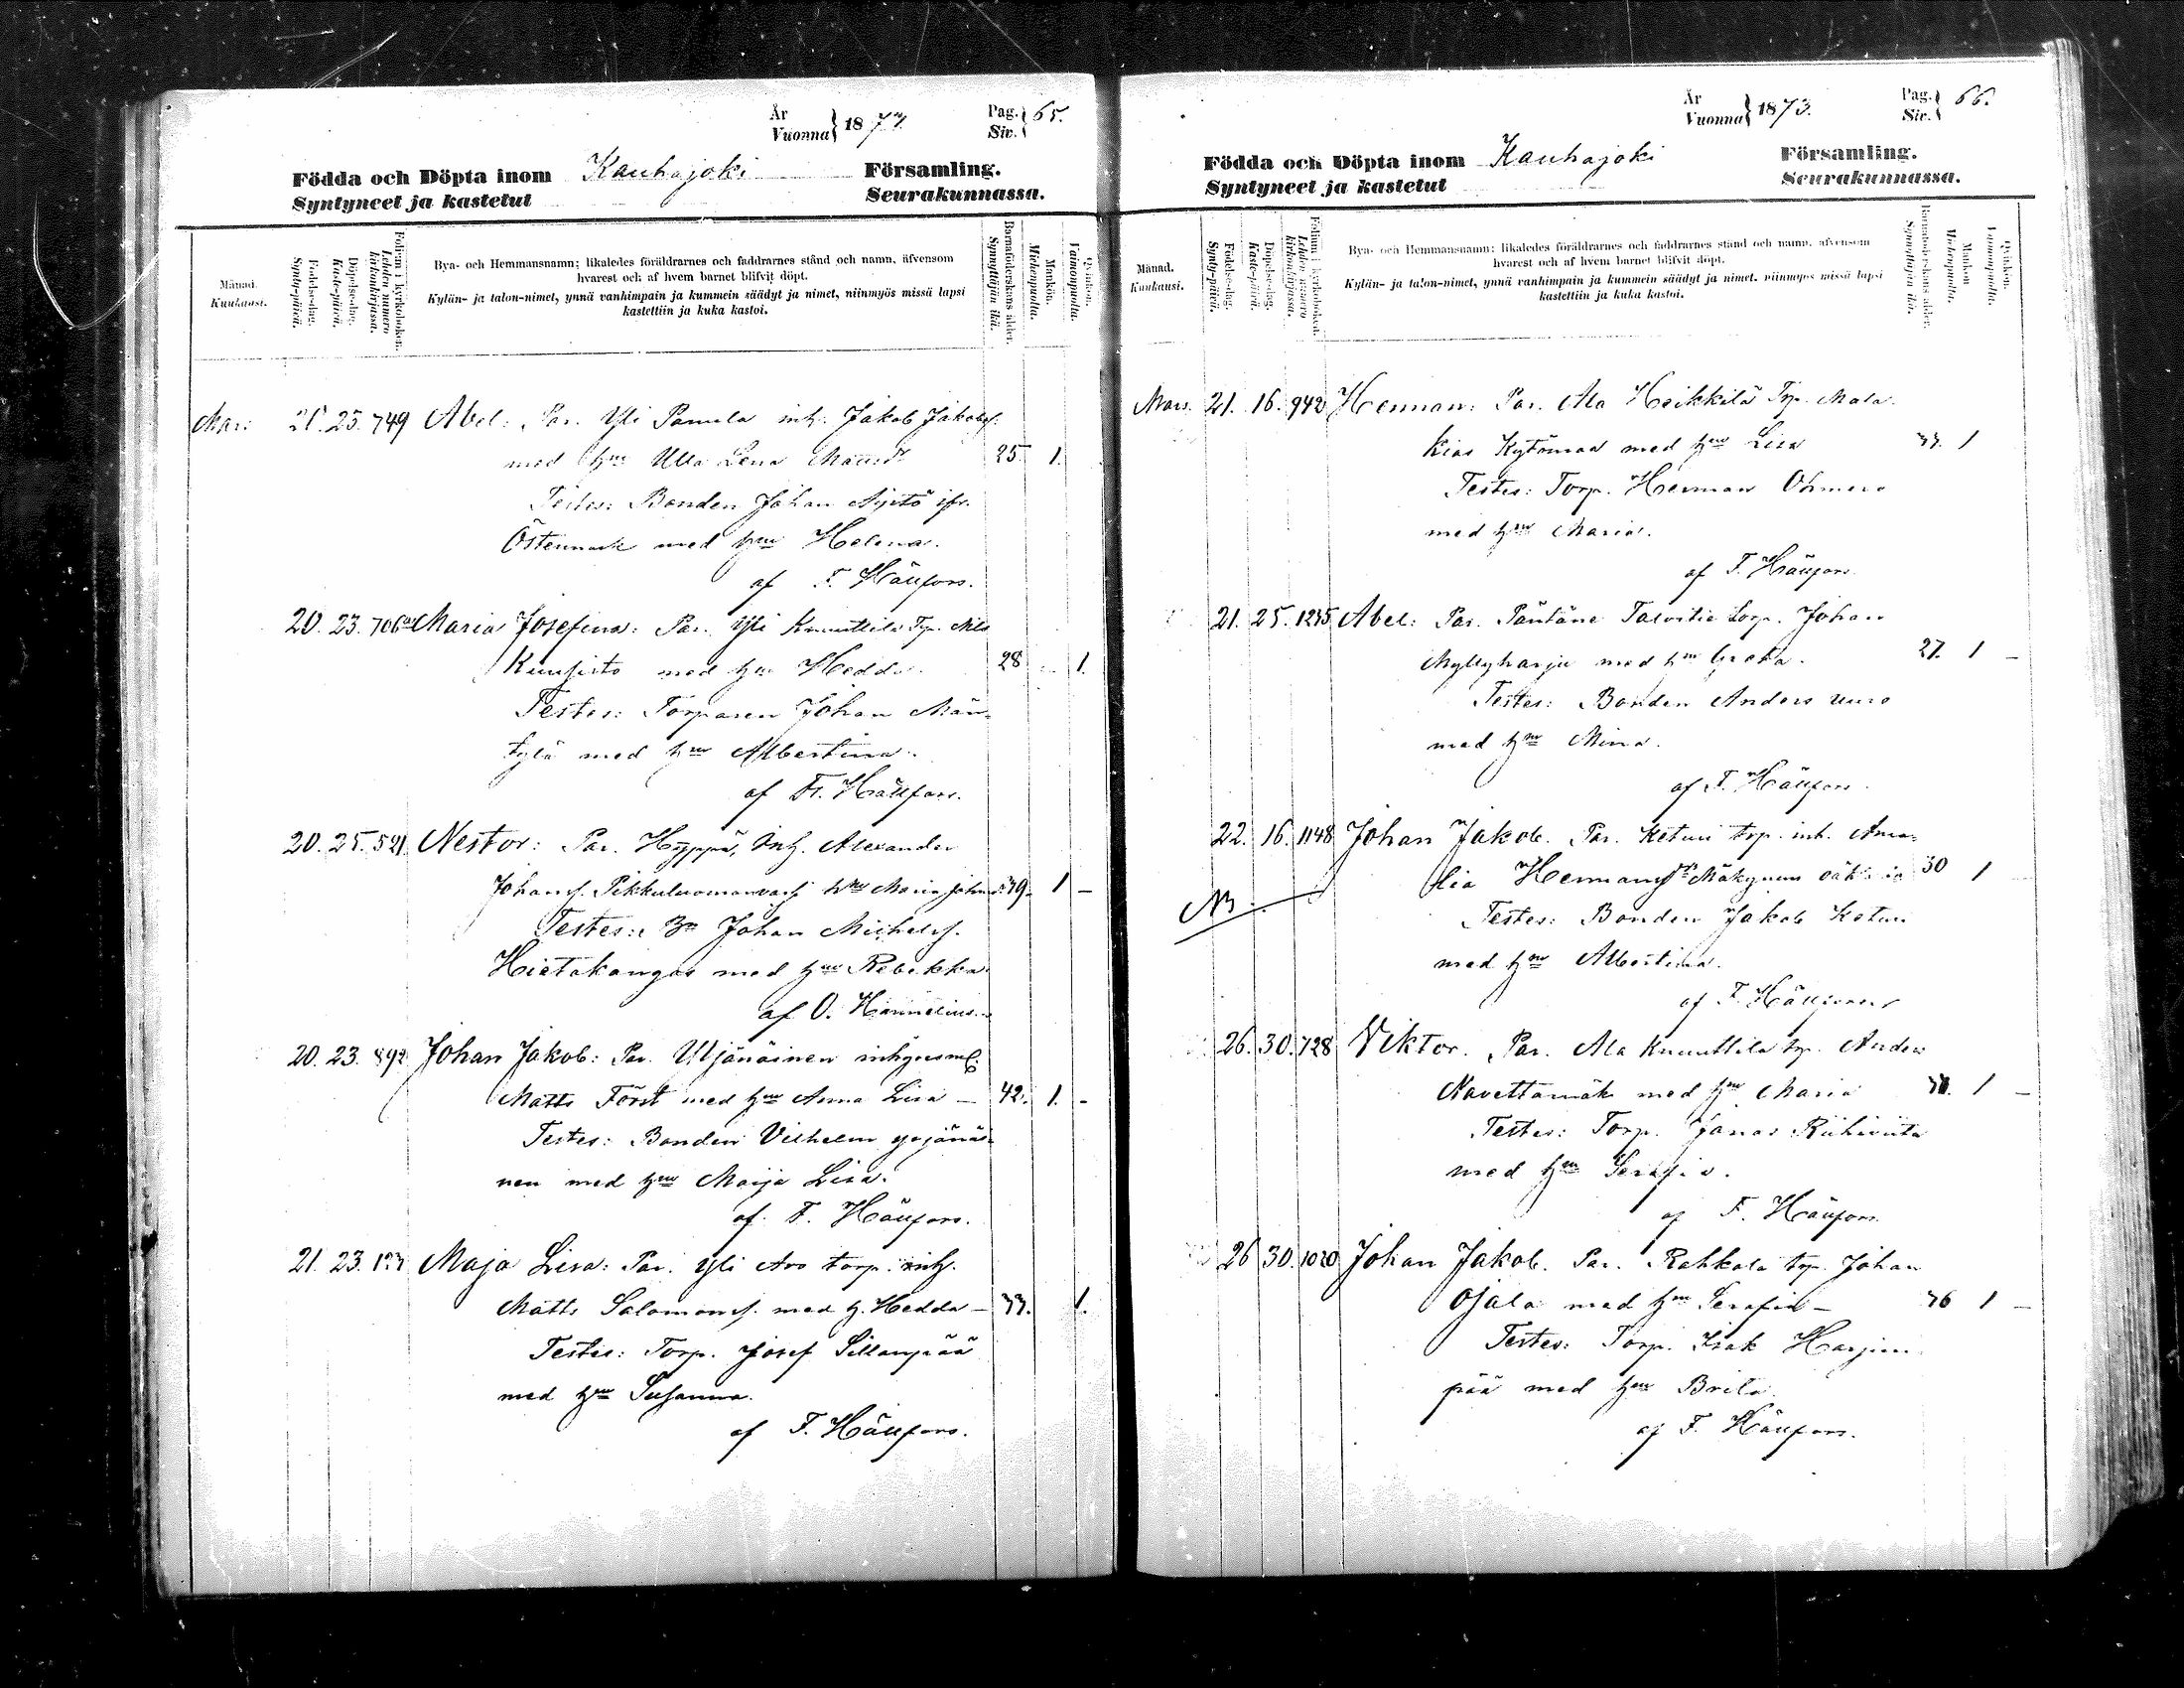 År
Vuonna } 1873.
Pag.
Siv. } 65.
Födda och Döpta inom Kauhajoki Församling.
Syntyneet ja kastetut Seurakunnassa.
Månad.
Kuukausi.
Födelsedag.
Synty-päivä.
Döpelsedag.
Kaste-päivä.
Folium i kyrkoboken.
Lehden numero kirkonkirjassa.
Bya- och Hemmansnamn; likaledes föräldrarnes och faddrarnes stånd och namn, äfvensom
hvarest och af hvem barnet blifvit döpt.
Kylän- ja talon-nimet, ynnä vanhimpain ja kummein säädyt ja nimet, niinmyös missä lapsi
kastettiin ja kuka kastoi.
Barnaföderskans ålder.
Synnyttäjän ikä.
Mankön.
Miehenpuolta.
Qvinkön.
Vaimonpuolta.
Mars 25. 749 Abel: Par. Yli Pamila inh. Jakob Jakobss.
med hu Ulla Lena Mattsdr 25. 1.
Testes: Bonden Johan Äijö ifr.
Östermark med hu Helena.
af F. Hällfors.
20. 23. 706 Maria Josefina: Par. Yli Knuuttila Trp. Nils
Kuusisto med hu Hedda. 28 - 1.
Testes: Torparen Johan Män-
tylä med hu Albertina.
af Fr. Hällfors.
20. 25. 521 Nestor: Par. Hyppä, Inh. Alexander
Johanss. Pikkuluoman hu Maria 39. 1 -
Testes: Bn Johan Michelss.
Hietakangas med hu Rebekka
af O. Hannelius.
20. 23. 892 Johan Jakob: Par. Yljänäinen
Matts Först med hu Anna Lisa - 42. 1. -
Testes: Bonden Vilhelm yojänäi-
nen med hu Maija Lisa.
af F. Hällfors.
21. 23. Maja Lisa: Par. Yli Aro torp. inh.
Matts Salomonss. med h. Hedda - 33. 1.
Testes: Torp. Josef Sillanpää
med hu Susanna.
af F. Hällfors.
År
Vuonna } 1873.
Pag.
Siv. } 66.
Födda och Döpta inom Kauhajoki Församling.
Syntyneet ja kastetut Seurakunnassa.
Månad.
Kuukausi.
Födelsedag.
Synty-päivä.
Döpelsedag.
Kaste-päivä.
Folium i kyrkoboken.
Lehden numero kirkonkirjassa.
Bya- och Hemmansnamn; likaledes föräldrarnes och faddrarnes stånd och namn, äfvensom
hvarest och af hvem barnet blifvit döpt.
Kylän- ja talon-nimet, ynnä vanhimpain ja kummein säädyt ja nimet, niinmyös missä lapsi
kastettiin ja kuka kastoi.
Barnaföderskans ålder.
Synnyttäjän ikä.
Mankön.
Miehenpuolta.
Qvinkön.
Vaimonpuolta.
Mars 21. 16. 942 Herman: Par. Ala Heikkilä Trp. Mala-
kias Kytömaa med hu Lisa 33. 1
Testes: Torp. Herman
med hu Maria.
af F. Hällfors.
21. 25. 1235 Abel: Par. Päntäne Talvitie torp. Johan
Myllyharju med hu Greta. 27. 1 -
Testes: Bonden Anders uuro
med hu Mina.
af F. Hällfors.
22. 16. 1148 Johan Jakob. Par. Keturi trp. inh. Ama-
lia Hermansdr 30 1
NB Testes: Bonden Jakob Keturi
med hu Albertina.
af F. Hällfors
26. 30. 728 Viktor. Par. Ala Knuuttila trp. Anders
Navettamäki med hu Maria 1 -
Testes: Torp. Jonas Riihiviita
med hu Serafia.
af F. Hällfors.
26 30. 1020 Johan Jakob. Par. Rahkola trp. Johan
Ojala med hu Serafia - 36 1 -
Testes: Torp. Isak Harjun-
pää med hu Brita.
af F. Hällfors.